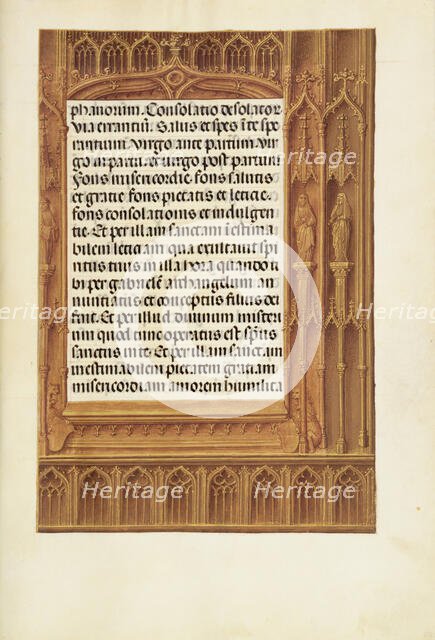 phanorum. Consolatio desolator
Via errantiu. Salus et spes i te spe
rantium. Virgo ante partum vir
go in partu. et virgo post partum
Fons misericordie. fons salutis
et gratie fons pietatis et leticie.
fons consolationis et indulgen
tie. Et per illam sanctam i estima
bilem leticiam qua exultavit spi
ritus tuus in illa hora quando ti
bi per gabriele archangelum an
nunciatus et conceptus filius dei
fuit. Et per illud divinum misteri
um quod tunc operatus est spus
sanctus in te. Et per illam sanctam
inestimabilem pietatem gratiam
misericordiam amorem humilita
Heritage Heritage Heritage
Heritage Heritage Heritage